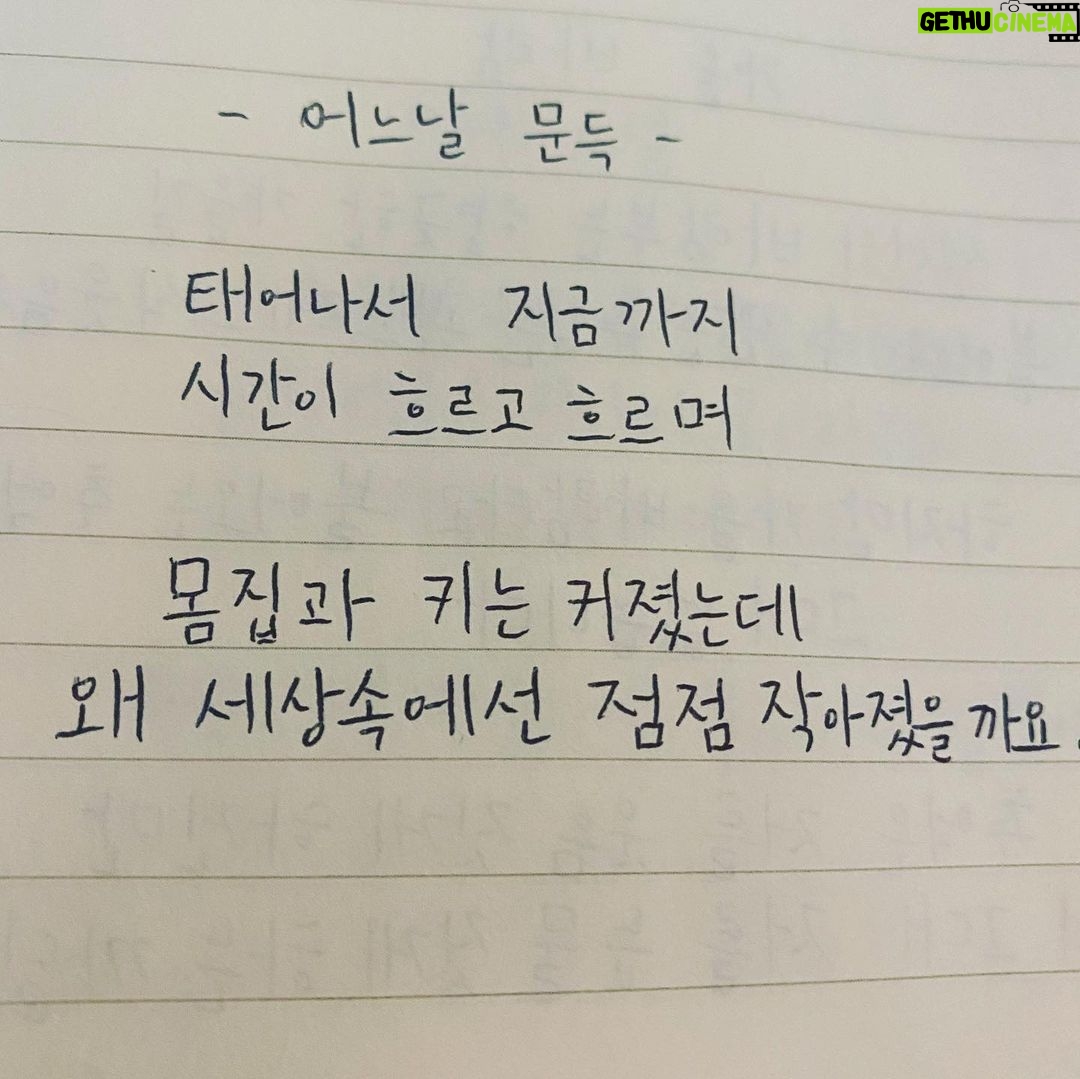 GETHUCINEMA
- 어느날 문득 -
태어나서 지금까지
시간이 흐르고 흐르며
몸집과 키는 커졌는데
왜 세상속에선 점점 작아졌을까요.